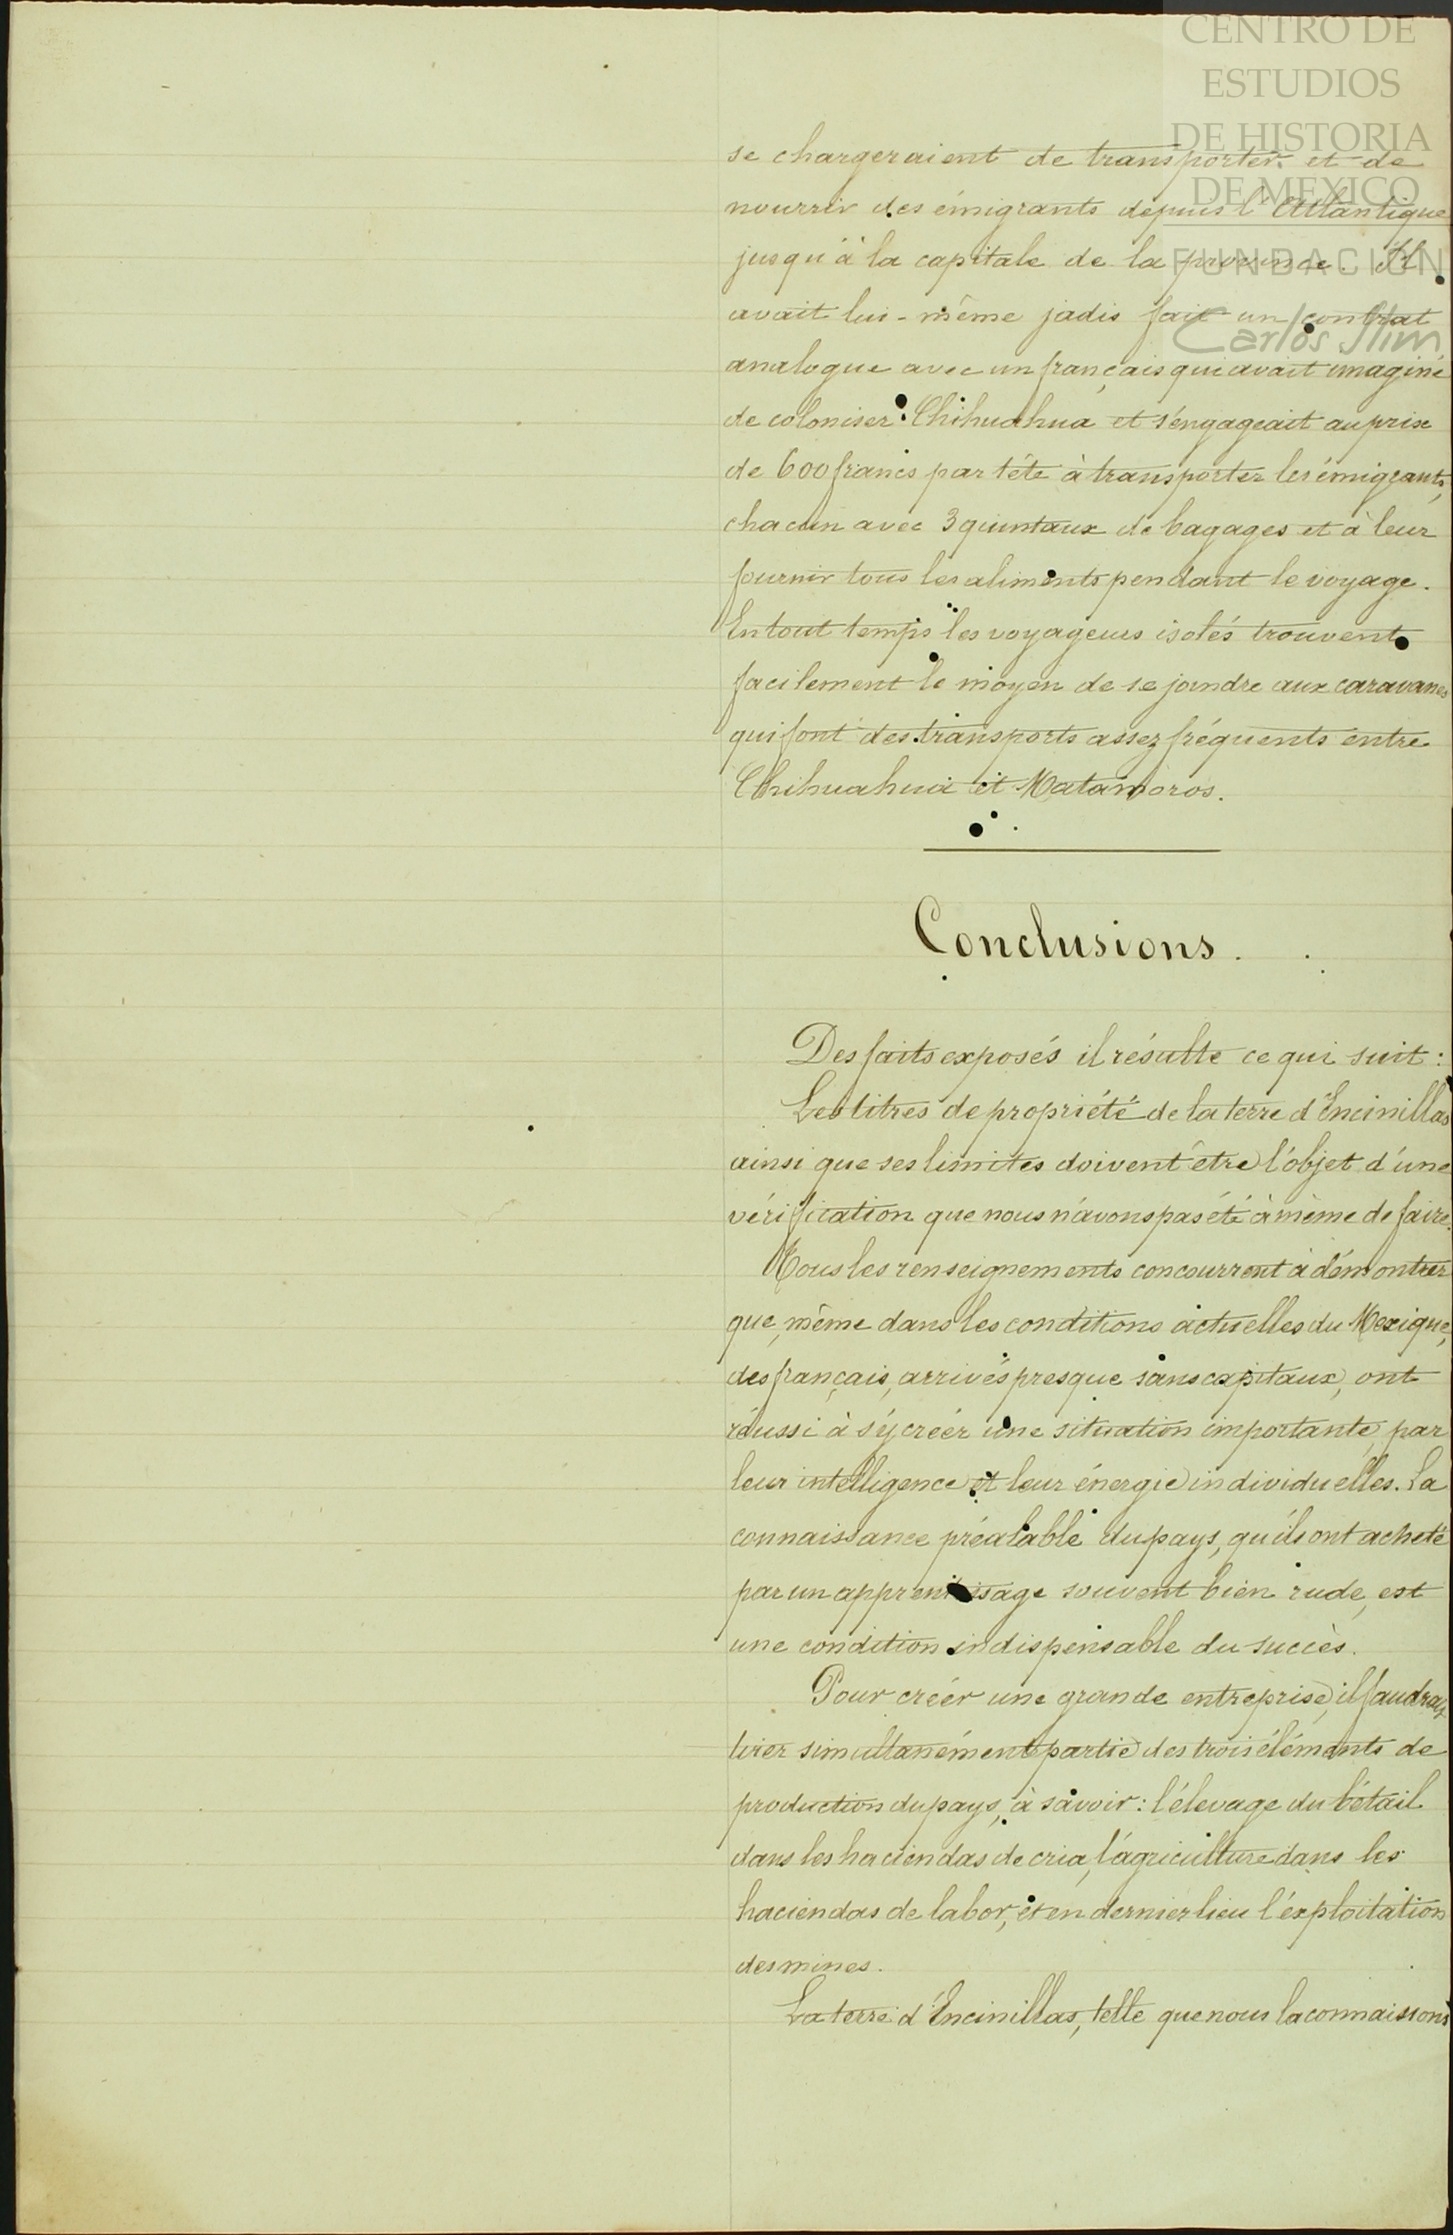 CENTRO DE
ESTUDIOS
DE HISTORIA
DE MEXICO
FUNDACIÓN
Carlos Slim
se chargeraient de transporter et de
nourrir des émigrants depuis l'Atlantique
jusqu'à la capitale de la province. Il
avait lui-même jadis fait un contrat
analogue avec un français qui avait imaginé
de coloniser Chihuahua et s'engageait au prix
de 600 francs par tête à transporter les émigrants,
chacun avec 3 quintaux de bagages et à leur
fournir tous les aliments pendant le voyage.
En tout temps les voyageurs isolés trouvent
facilement le moyen de se joindre aux caravanes
qui font des transports assez fréquents entre
Chihuahua et Matamoros.
Conclusions.
Des faits exposés il résulte ce qui suit :
Les titres de propriété de la terre d'Encinillas
ainsi que ses limites doivent être l'objet d'une
vérification que nous n'avons pas été à même de faire.
Tous les renseignements concourrent à démontrer
que, même dans les conditions actuelles du Mexique,
des français, arrivés presque sans capitaux, ont
réussi à s'y créer une situation importante, par
leur intelligence et leur énergie individuelles. La
connaissance préalable du pays, qu'ils ont acheté
par un apprentissage souvent bien rude, est
une condition indispensable du succès.
Pour créer une grande entreprise, il faudrait
tirer simultanément partie des trois éléments de
production du pays, à savoir : l'élevage du bétail
dans les haciendas de cria, l'agriculture dans les
haciendas de labor, et en dernier lieu l'exploitation
des mines.
La terre d'Encinillas, telle que nous la connaissons